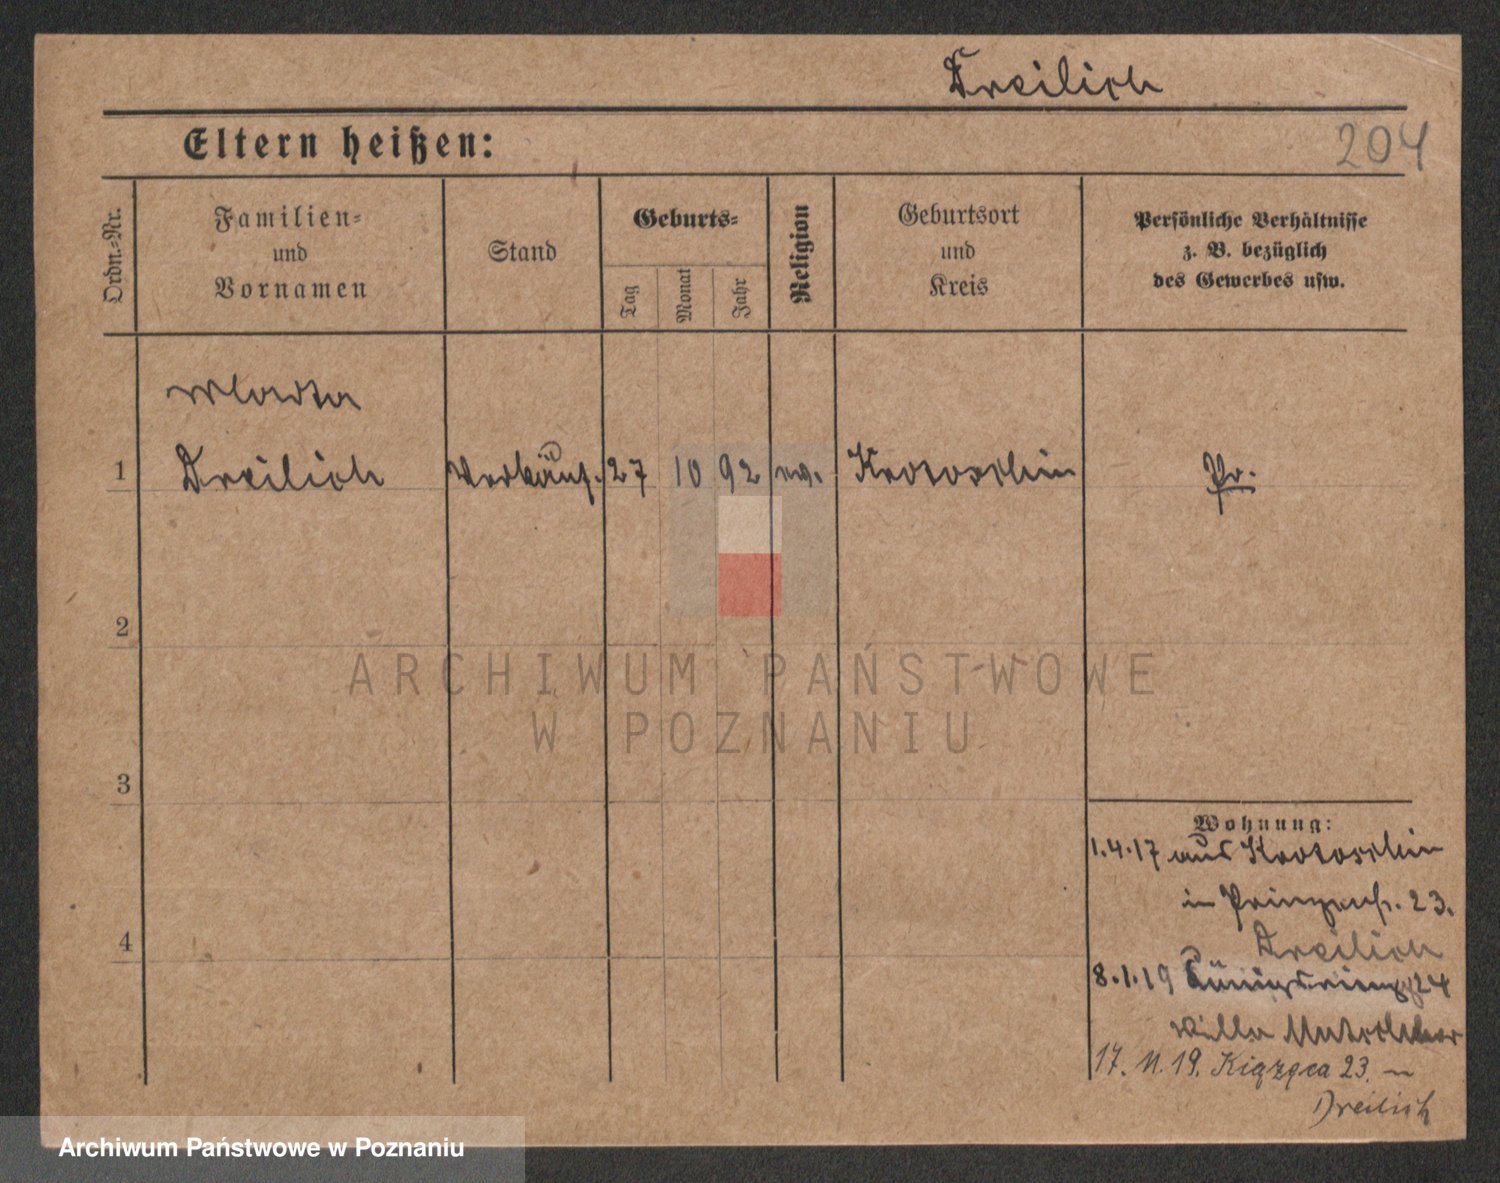 Dreilich
Eltern heißen:
204
Ordn.-Nr.
Familien-
und
Vornamen
Stand
Geburts-
Tag
Monat
Jahr
Religion
Geburtsort
und
Kreis
Persönliche Verhältnisse
z. B. bezüglich
des Gewerbes usw.
1
Dreilich
Verkäuf.
27
10
92
ev.
Krotoschin
Pr.
2
3
4
Wohnung:
1.4.17 aus Krotoschin
in Prinzenstr. 23.
Dreilich
8.1.19 Königsring 24
Villa
17. 11. 19. Książęca 23. —
Dreilich
ARCHIWUM PAŃSTWOWE
W POZNANIU
Archiwum Państwowe w Poznaniu